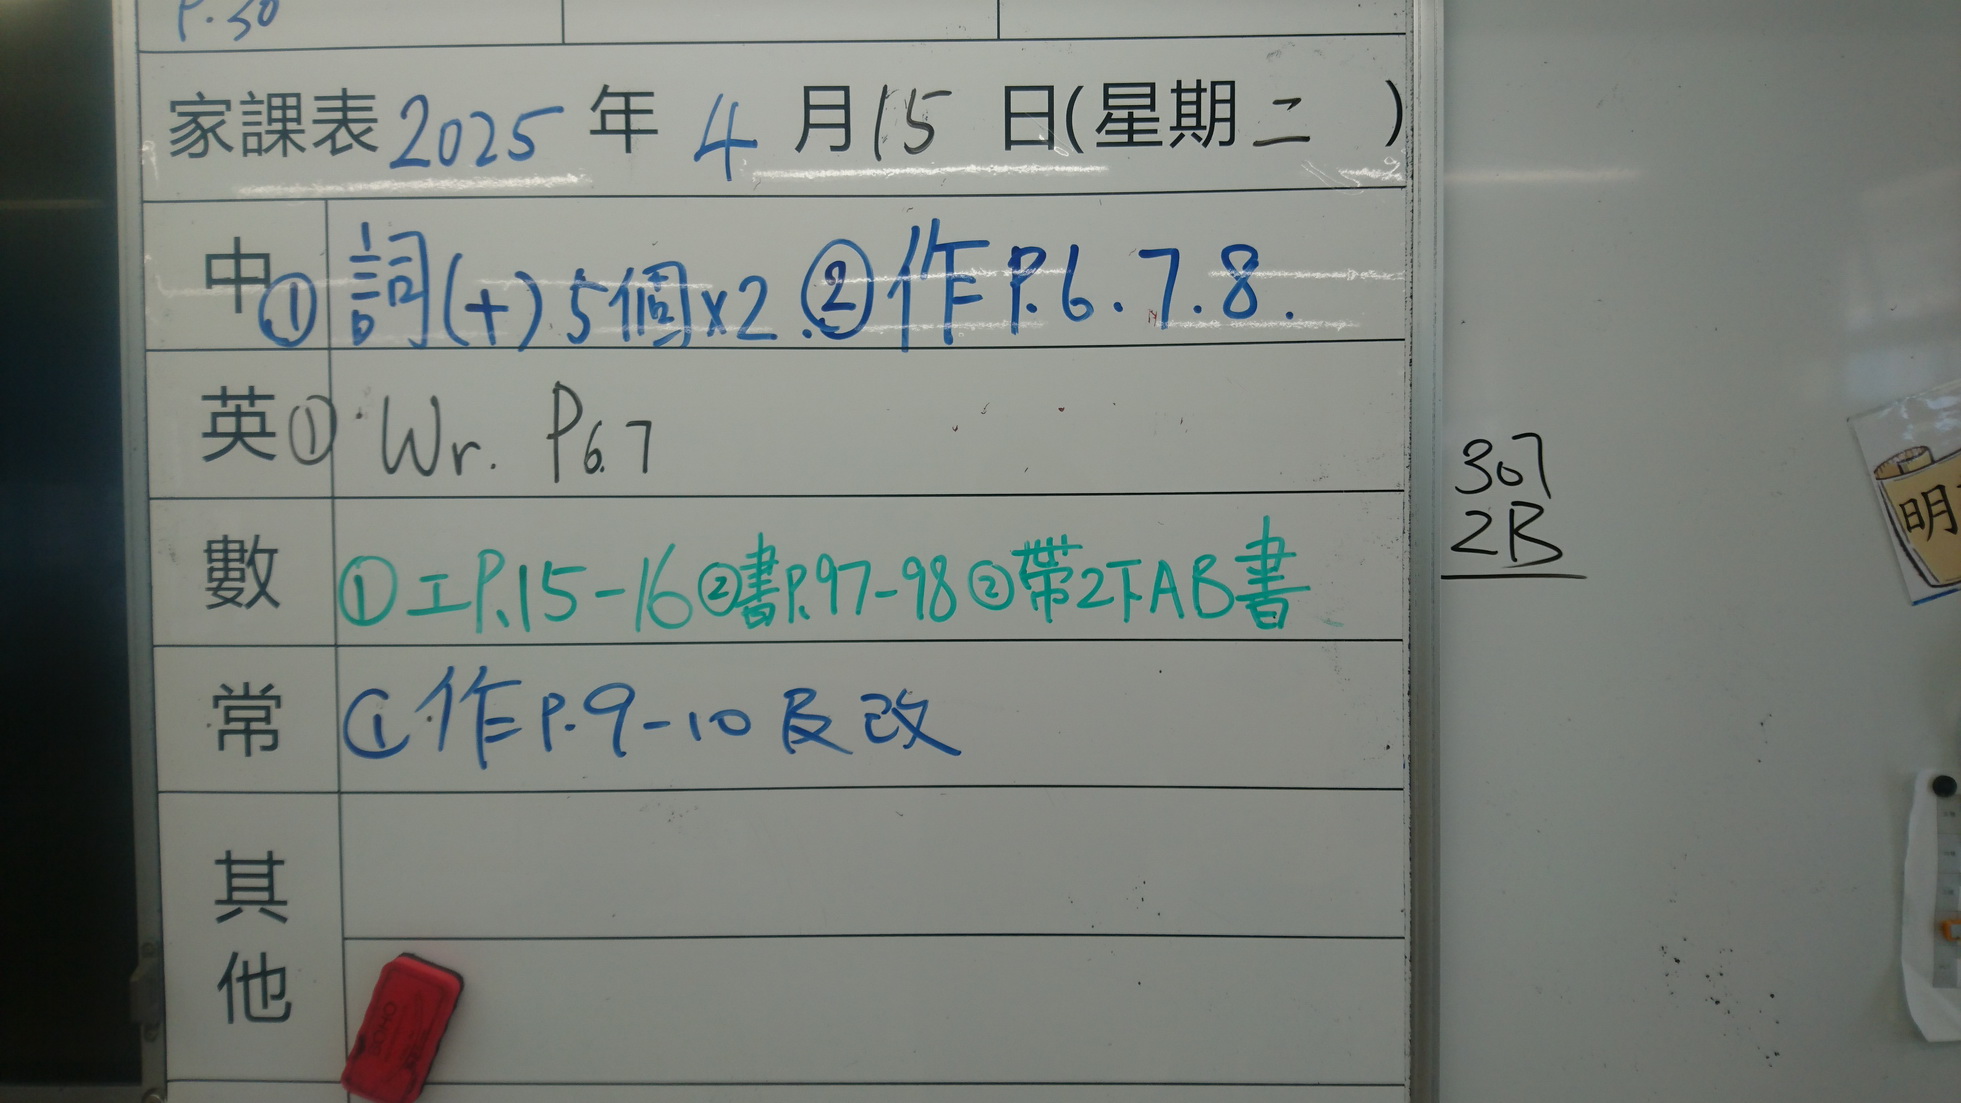 P.30
家課表 2025 年 4 月 15 日(星期二 )
中 ① 詞(十) 5個×2. ② 作 P.6.7.8.
英 ① Wr. P6.7
數 ① 工 P.15-16 ② 書 P.97-98 ② 帶2下AB書
常 ① 作 P.9-10 及改
其他
307
2B
明